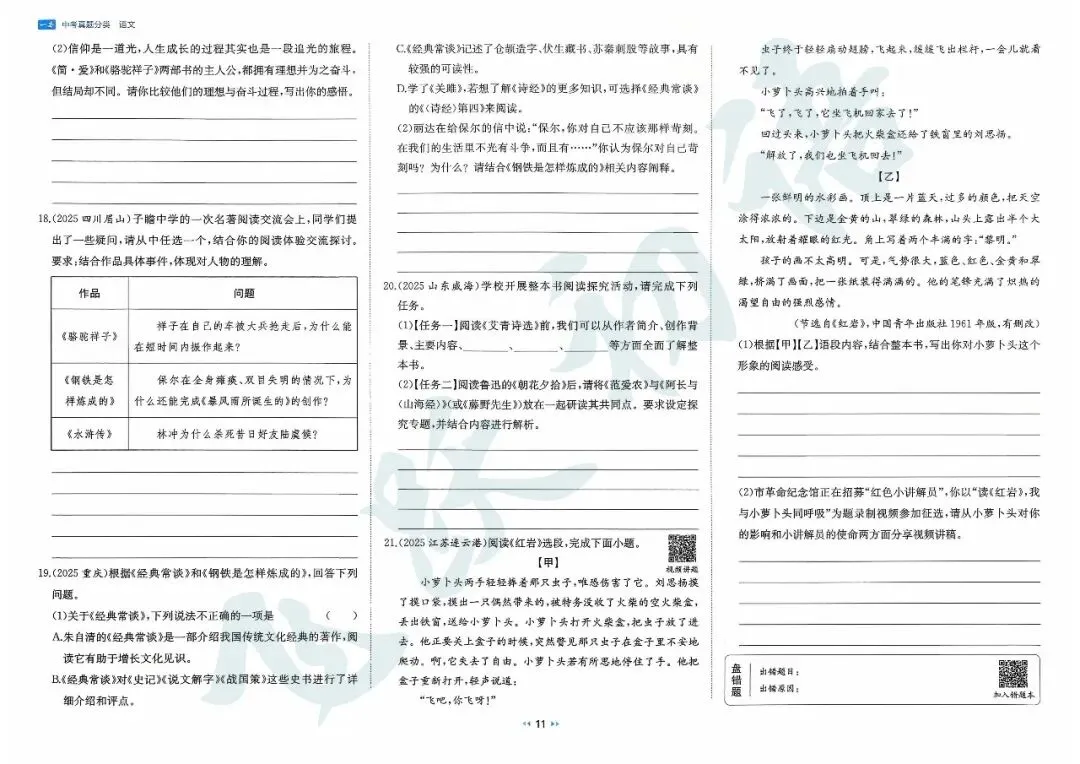 一本 中考真题分类 语文
(2)信仰是一道光,人生成长的过程其实也是一段追光的旅程。
《简·爱》和《骆驼祥子》两部书的主人公,都拥有理想并为之奋斗,
但结局却不同。请你比较他们的理想与奋斗过程,写出你的感悟。
18.(2025 四川眉山)子瞻中学的一次名著阅读交流会上,同学们提
出了一些疑问,请从中任选一个,结合你的阅读体验交流探讨。
要求:结合作品具体事件,体现对人物的理解。
作品 问题
《骆驼祥子》 祥子在自己的车被大兵抢走后,为什么能
在短时间内振作起来?
《钢铁是怎
样炼成的》 保尔在全身瘫痪、双目失明的情况下,为
什么还能完成《暴风雨所诞生的》的创作?
《水浒传》 林冲为什么杀死昔日好友陆虞候?
19.(2025 重庆)根据《经典常谈》和《钢铁是怎样炼成的》,回答下列
问题。
(1)关于《经典常谈》,下列说法不正确的一项是 ( )
A.朱自清的《经典常谈》是一部介绍我国传统文化经典的著作,阅
读它有助于增长文化见识。
B.《经典常谈》对《史记》《说文解字》《战国策》这些史书进行了详
细介绍和评点。
C.《经典常谈》记述了仓颉造字、伏生藏书、苏秦刺股等故事,具有
较强的可读性。
D.学了《关雎》,若想了解《诗经》的更多知识,可选择《经典常谈》
的《〈诗经〉第四》来阅读。
(2)丽达在给保尔的信中说:“保尔,你对自己不应该那样苛刻。
在我们的生活里不光有斗争,而且有……”你认为保尔对自己苛
刻吗?为什么?请结合《钢铁是怎样炼成的》相关内容阐释。
20.(2025 山东威海)学校开展整本书阅读探究活动,请完成下列
任务。
(1)【任务一】阅读《艾青诗选》前,我们可以从作者简介、创作背
景、主要内容、______、______、______ 等方面全面了解整
本书。
(2)【任务二】阅读鲁迅的《朝花夕拾》后,请将《范爱农》与《阿长与
〈山海经〉》(或《藤野先生》)放在一起研读其共同点。要求设定探
究专题,并结合内容进行解析。
21.(2025 江苏连云港)阅读《红岩》选段,完成下面小题。
视频讲题
【甲】
小萝卜头两手轻轻捧着那只虫子,唯恐伤害了它。刘思扬摸
了摸口袋,摸出一只偶然带来的,被特务没收了火柴的空火柴盒,
丢出铁窗,送给小萝卜头。小萝卜头打开火柴盒,把虫子放了进
去。他正要关上盒子的时候,突然瞥见那只虫子在盒子里不安地
爬动。啊,它失去了自由。小萝卜头若有所思地停住了手。他把
盒子重新打开,轻声说道:
“飞吧,你飞呀!”
虫子终于轻轻扇动翅膀,飞起来,缓缓飞出栏杆,一会儿就看
不见了。
小萝卜头高兴地拍着手叫:
“飞了,飞了,它坐飞机回家去了!”
回过头来,小萝卜头把火柴盒还给了铁窗里的刘思扬。
“解放了,我们也坐飞机回去!”
【乙】
一张鲜明的水彩画。顶上是一片蓝天,过多的颜色,把天空
涂得浓浓的。下边是金黄的山,翠绿的森林,山头上露出半个大
太阳,放射着耀眼的红光。角上写着两个丰满的字:“黎明。”
孩子的画不太高明。可是,气势很大,蓝色、红色、金黄和翠
绿,挤满了画面,把一张纸装得满满的。他的笔锋充满了炽热的
渴望自由的强烈感情。
(节选自《红岩》,中国青年出版社 1961 年版,有删改)
(1)根据【甲】【乙】语段内容,结合整本书,写出你对小萝卜头这个
形象的阅读感受。
(2)市革命纪念馆正在招募“红色小讲解员”,你以“读《红岩》,我
与小萝卜头同呼吸”为题录制视频参加征选,请从小萝卜头对你
的影响和小讲解员的使命两方面分享视频讲稿。
盘错题
出错题目:
出错原因:
加入错题本
11